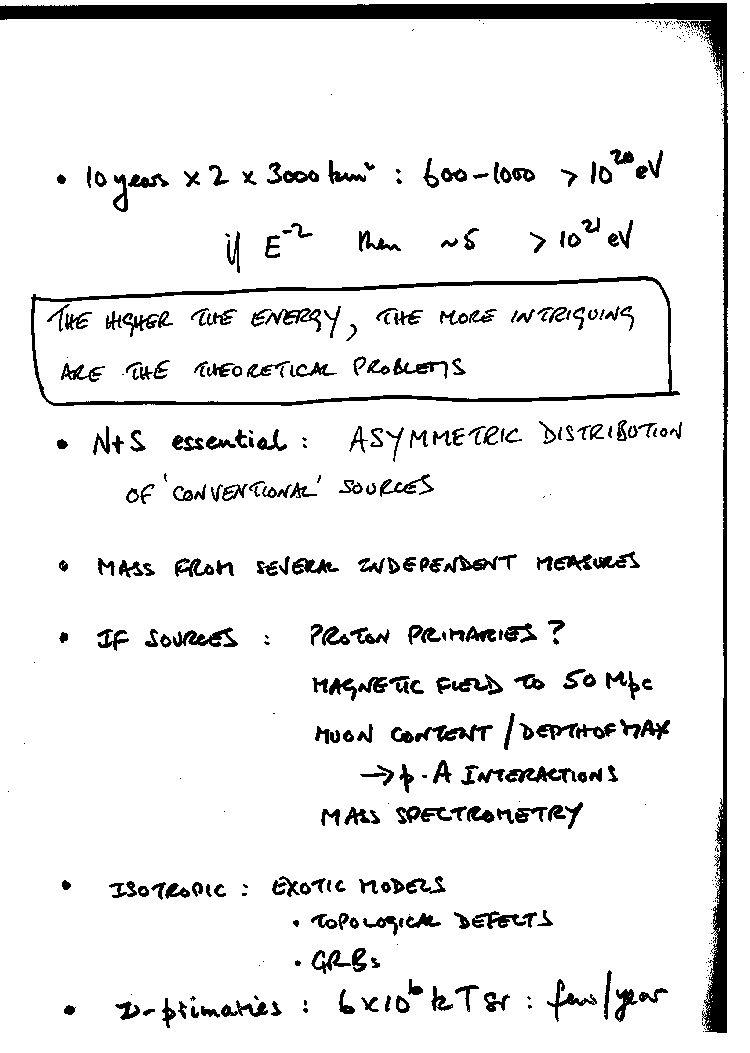 • 10 years x 2 x 3000 km² : 600-1000 > 10²⁰ eV
if E⁻² then ~5 > 10²¹ eV
THE HIGHER THE ENERGY, THE MORE INTRIGUING
ARE THE THEORETICAL PROBLEMS
• N+S essential : ASYMMETRIC DISTRIBUTION
OF 'CONVENTIONAL' SOURCES
• MASS FROM SEVERAL INDEPENDENT MEASURES
• IF SOURCES : PROTON PRIMARIES ?
MAGNETIC FIELD TO 50 Mpc
MUON CONTENT / DEPTH OF MAX
→ p-A INTERACTIONS
MASS SPECTROMETRY
• ISOTROPIC : EXOTIC MODELS
• TOPOLOGICAL DEFECTS
• GRBs
• ν-primaries : 6x10⁶ kT sr : few/year